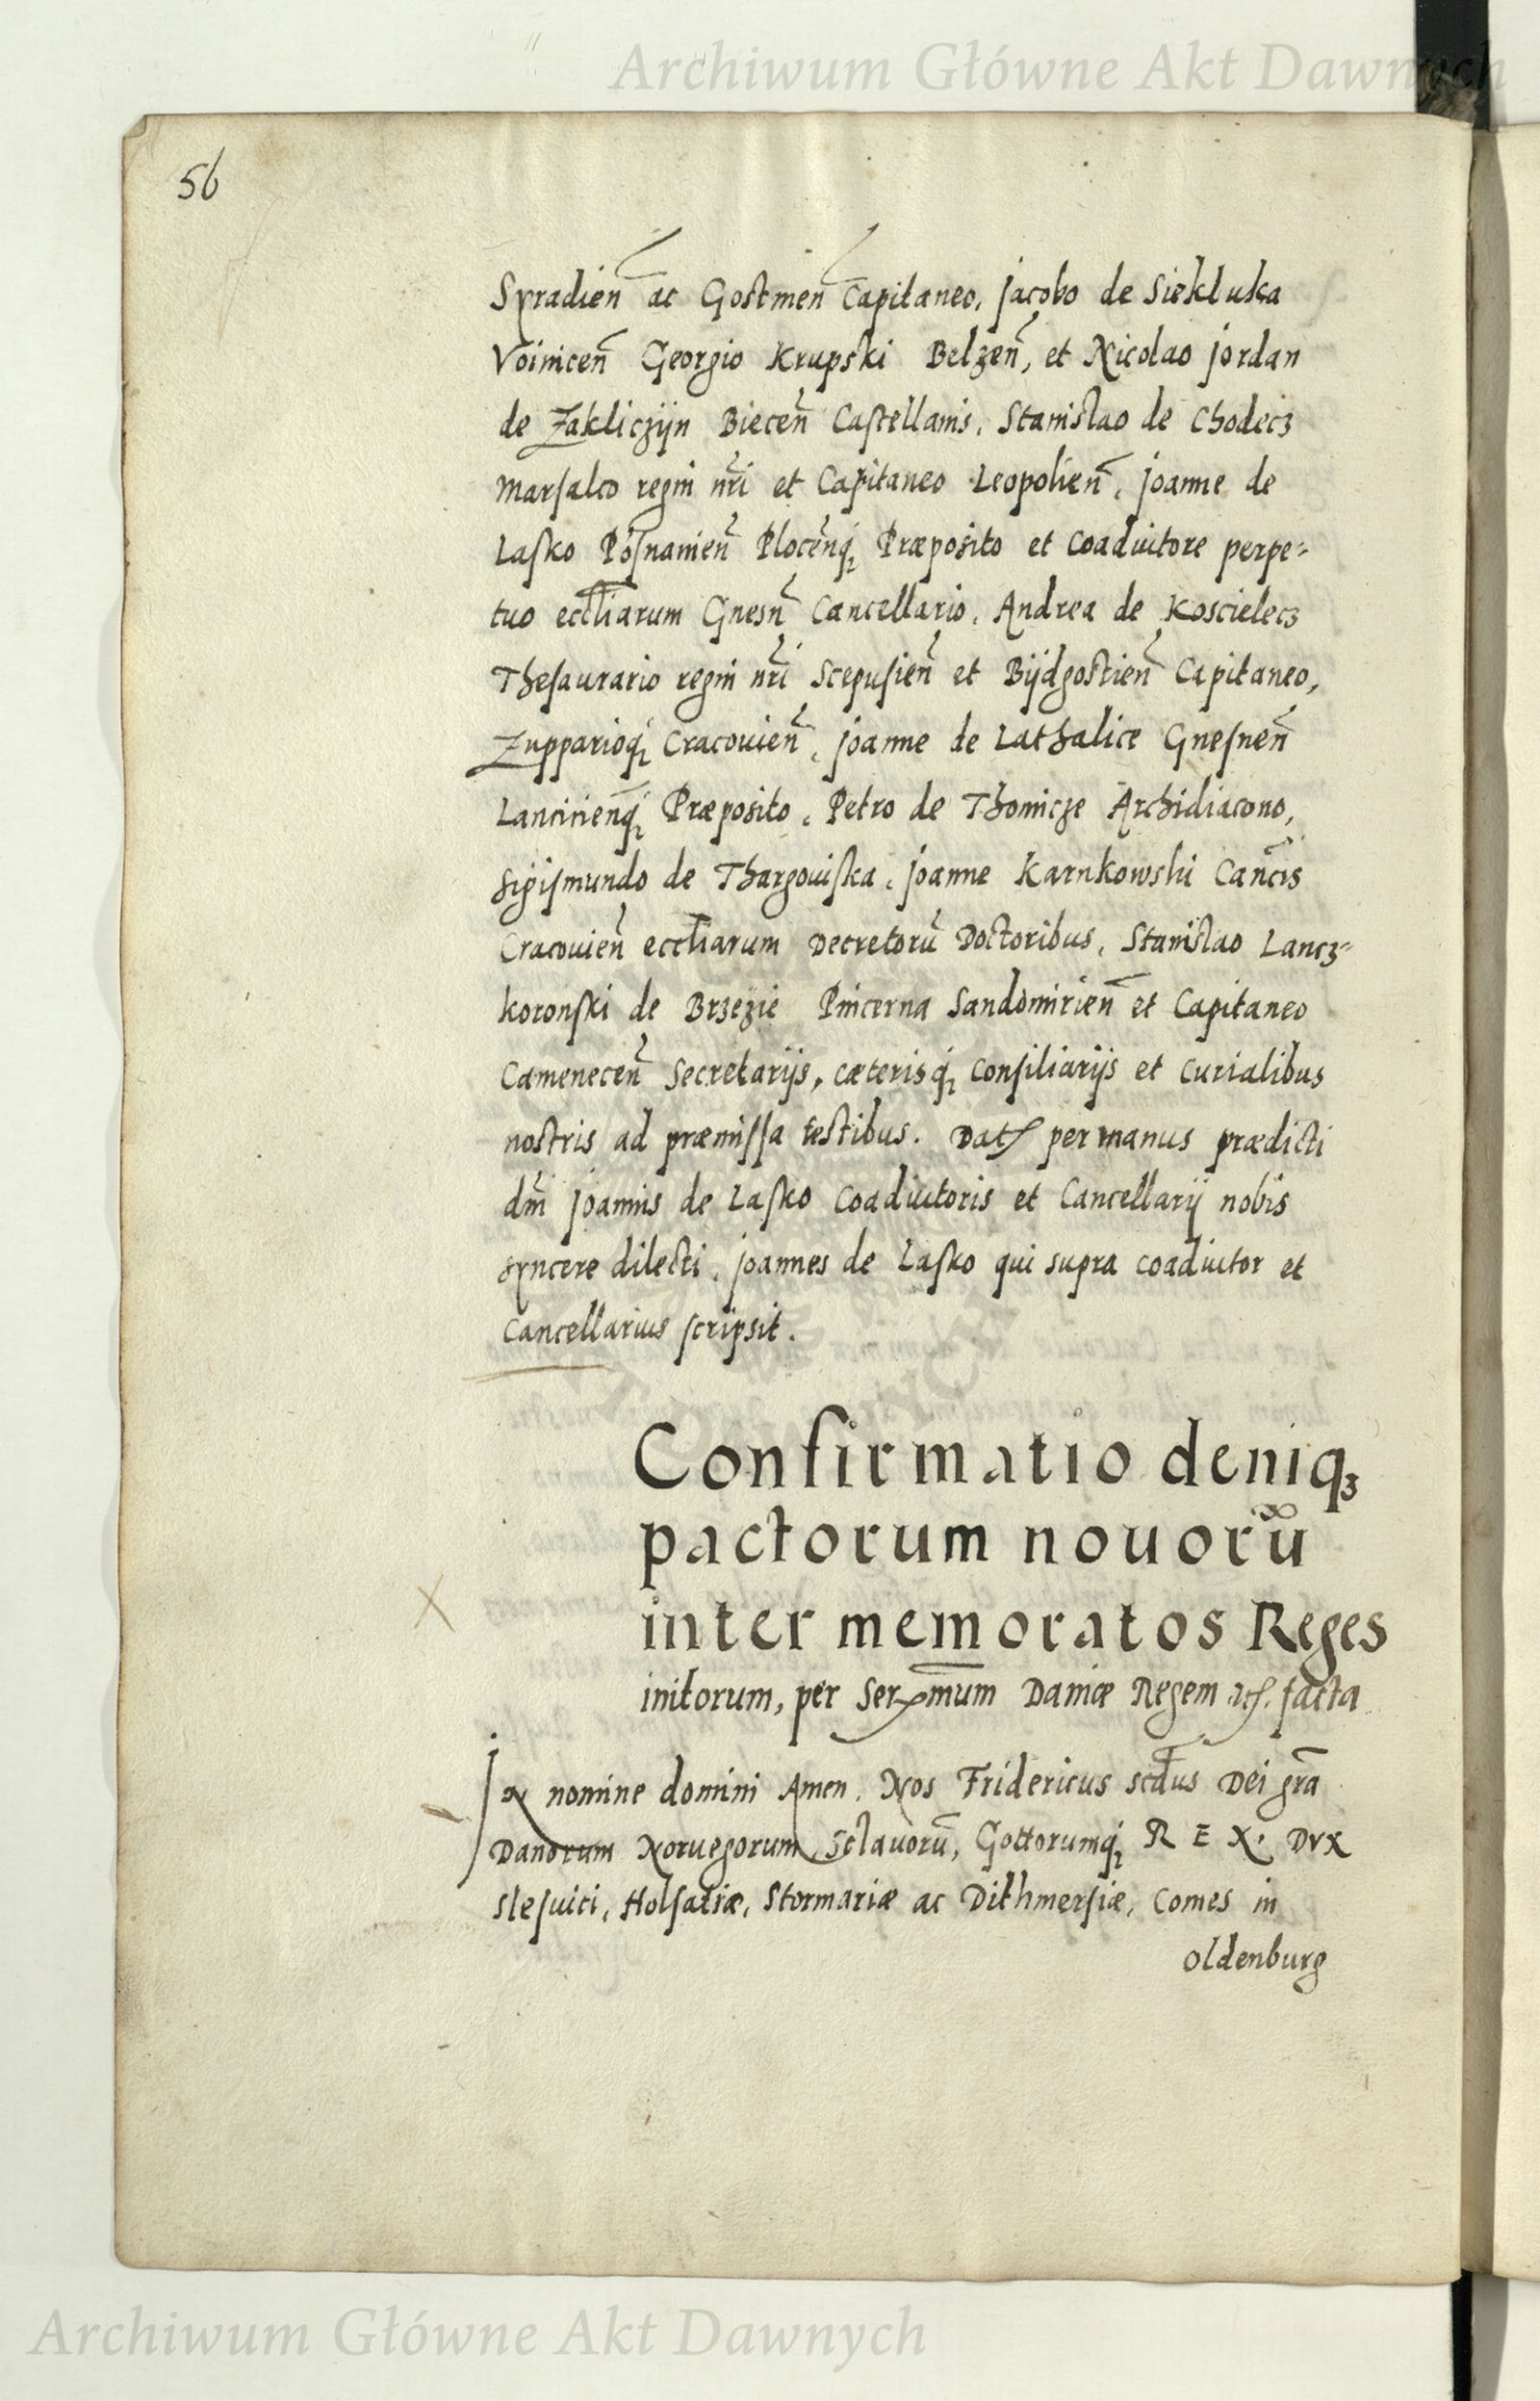 Archiwum Główne Akt Dawnych
56
Syradieñ ac Gostineñ Capitaneo, Jacobo de Siekluka
Voiniceñ Georgio Krupski Belzeñ, et Nicolao Jordan
de Zakliczÿn Bieceñ Castellanis, Stanislao de Chodecz
Marsalco regni nr̃i et Capitaneo Leopolieñ, Joanne de
Lasko Posnanieñ Ploceñq; Præposito et Coadiutore perpe-
tuo eccl̃iarum Gnesñ Cancellario, Andrea de Koscielecz
Thesaurario regni nr̃i Scepusieñ et Bÿdgostieñ Capitaneo,
Zupparioq; Cracouieñ, Joanne de Lathalice Gnesneñ
Lancicieñq; Præposito, Petro de Thomicze Archidiacono,
Sigismundo de Thargouiska, Joanne Karnkowski Cañcis
Cracouieñ eccl̃iarum Decretorũ Doctoribus, Stanislao Lancz-
koronski de Brzezie Pincerna Sandomirieñ et Capitaneo
Cameneceñ Secretarijs, cæterisq; Consiliarijs et Curialibus
nostris ad præmissa testibus. Dat. per manus prædicti
dñi Joannis de Lasko Coadiutoris et Cancellarij nobis
syncere dilecti, Joannes de Lasko qui supra coadiutor et
Cancellarius scripsit.
Confirmatio deniq;
pactorum nouorũ
inter memoratos Reges
initorum, per Ser.mum Daniæ Regem etc. facta
In nomine domini Amen. Nos Fridericus scd̃us Dei grã
Danorum Noruegorum Sclauorũ, Gottorumq; REX. DVX
Slesuici, Holsatiæ, Stormariæ ac Dithmersiæ, Comes in
Oldenburg
Archiwum Główne Akt Dawnych